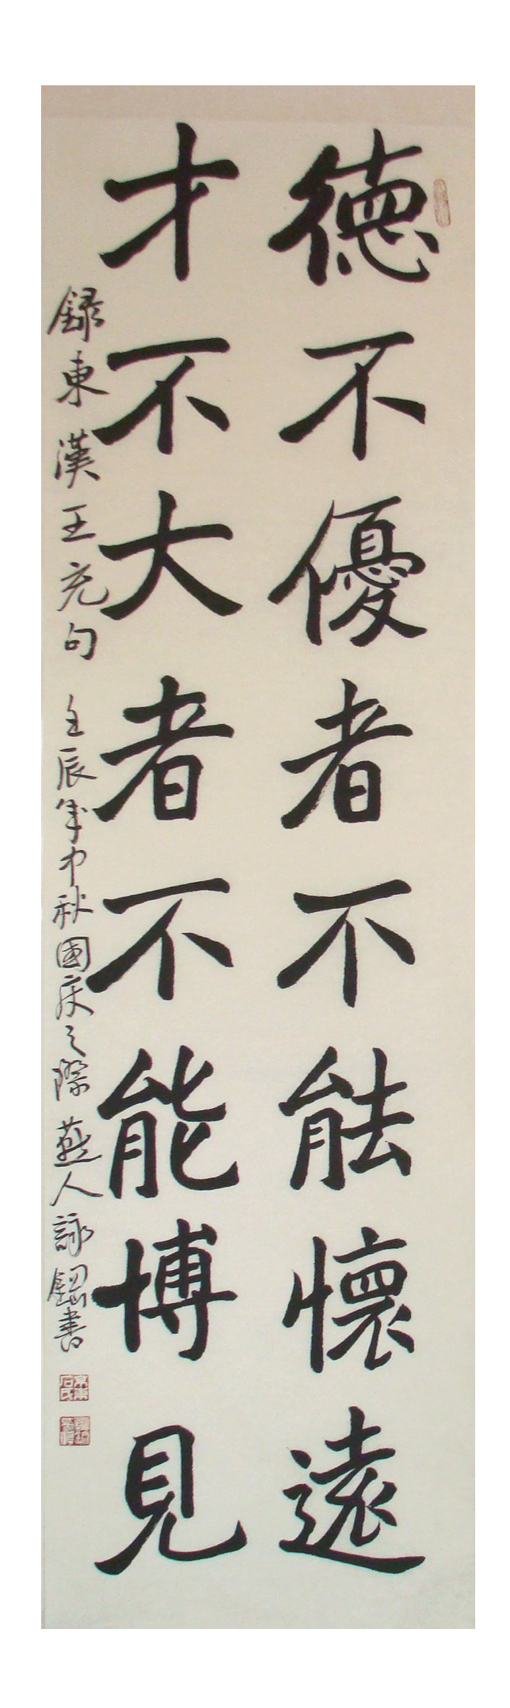 德不優者不能懷遠
才不大者不能博見
録東漢王充句 壬辰年中秋國庆之際 燕人詠鋼書